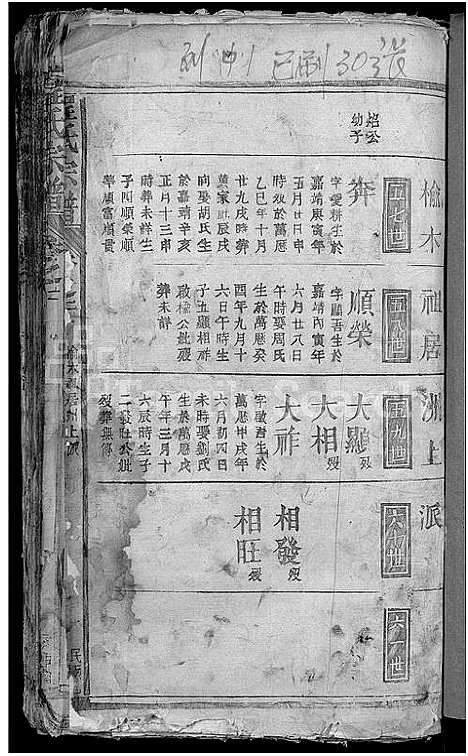 已刷30张
榆木祖居洲上派
五七世
五八世
五九世
六十世
六一世
焰公
幼子
奔
字愛耕生於
嘉靖庚寅年
五月廿日申
時殁於萬厯
乙巳年十月
廿九戌時葬
黄家
向娶胡氏生
於嘉靖辛亥
正月十三申
時葬未詳生
子四順榮順
華順富順貴
順榮
字顯吾生於
嘉靖丙寅年
六月廿八日
午時娶周氏
生於萬厯癸
酉年九月十
六日午時生
子五顯相祚
啟極公妣殁
葬未詳
大顯殁
大相殁
大祚
字啟君生於
萬厯甲戌年
六月初四日
未時娶劉氏
生於萬厯戊
午年三月十
六辰時生子
二發旺公妣
殁葬無考
相發殁
相旺殁
宗譜